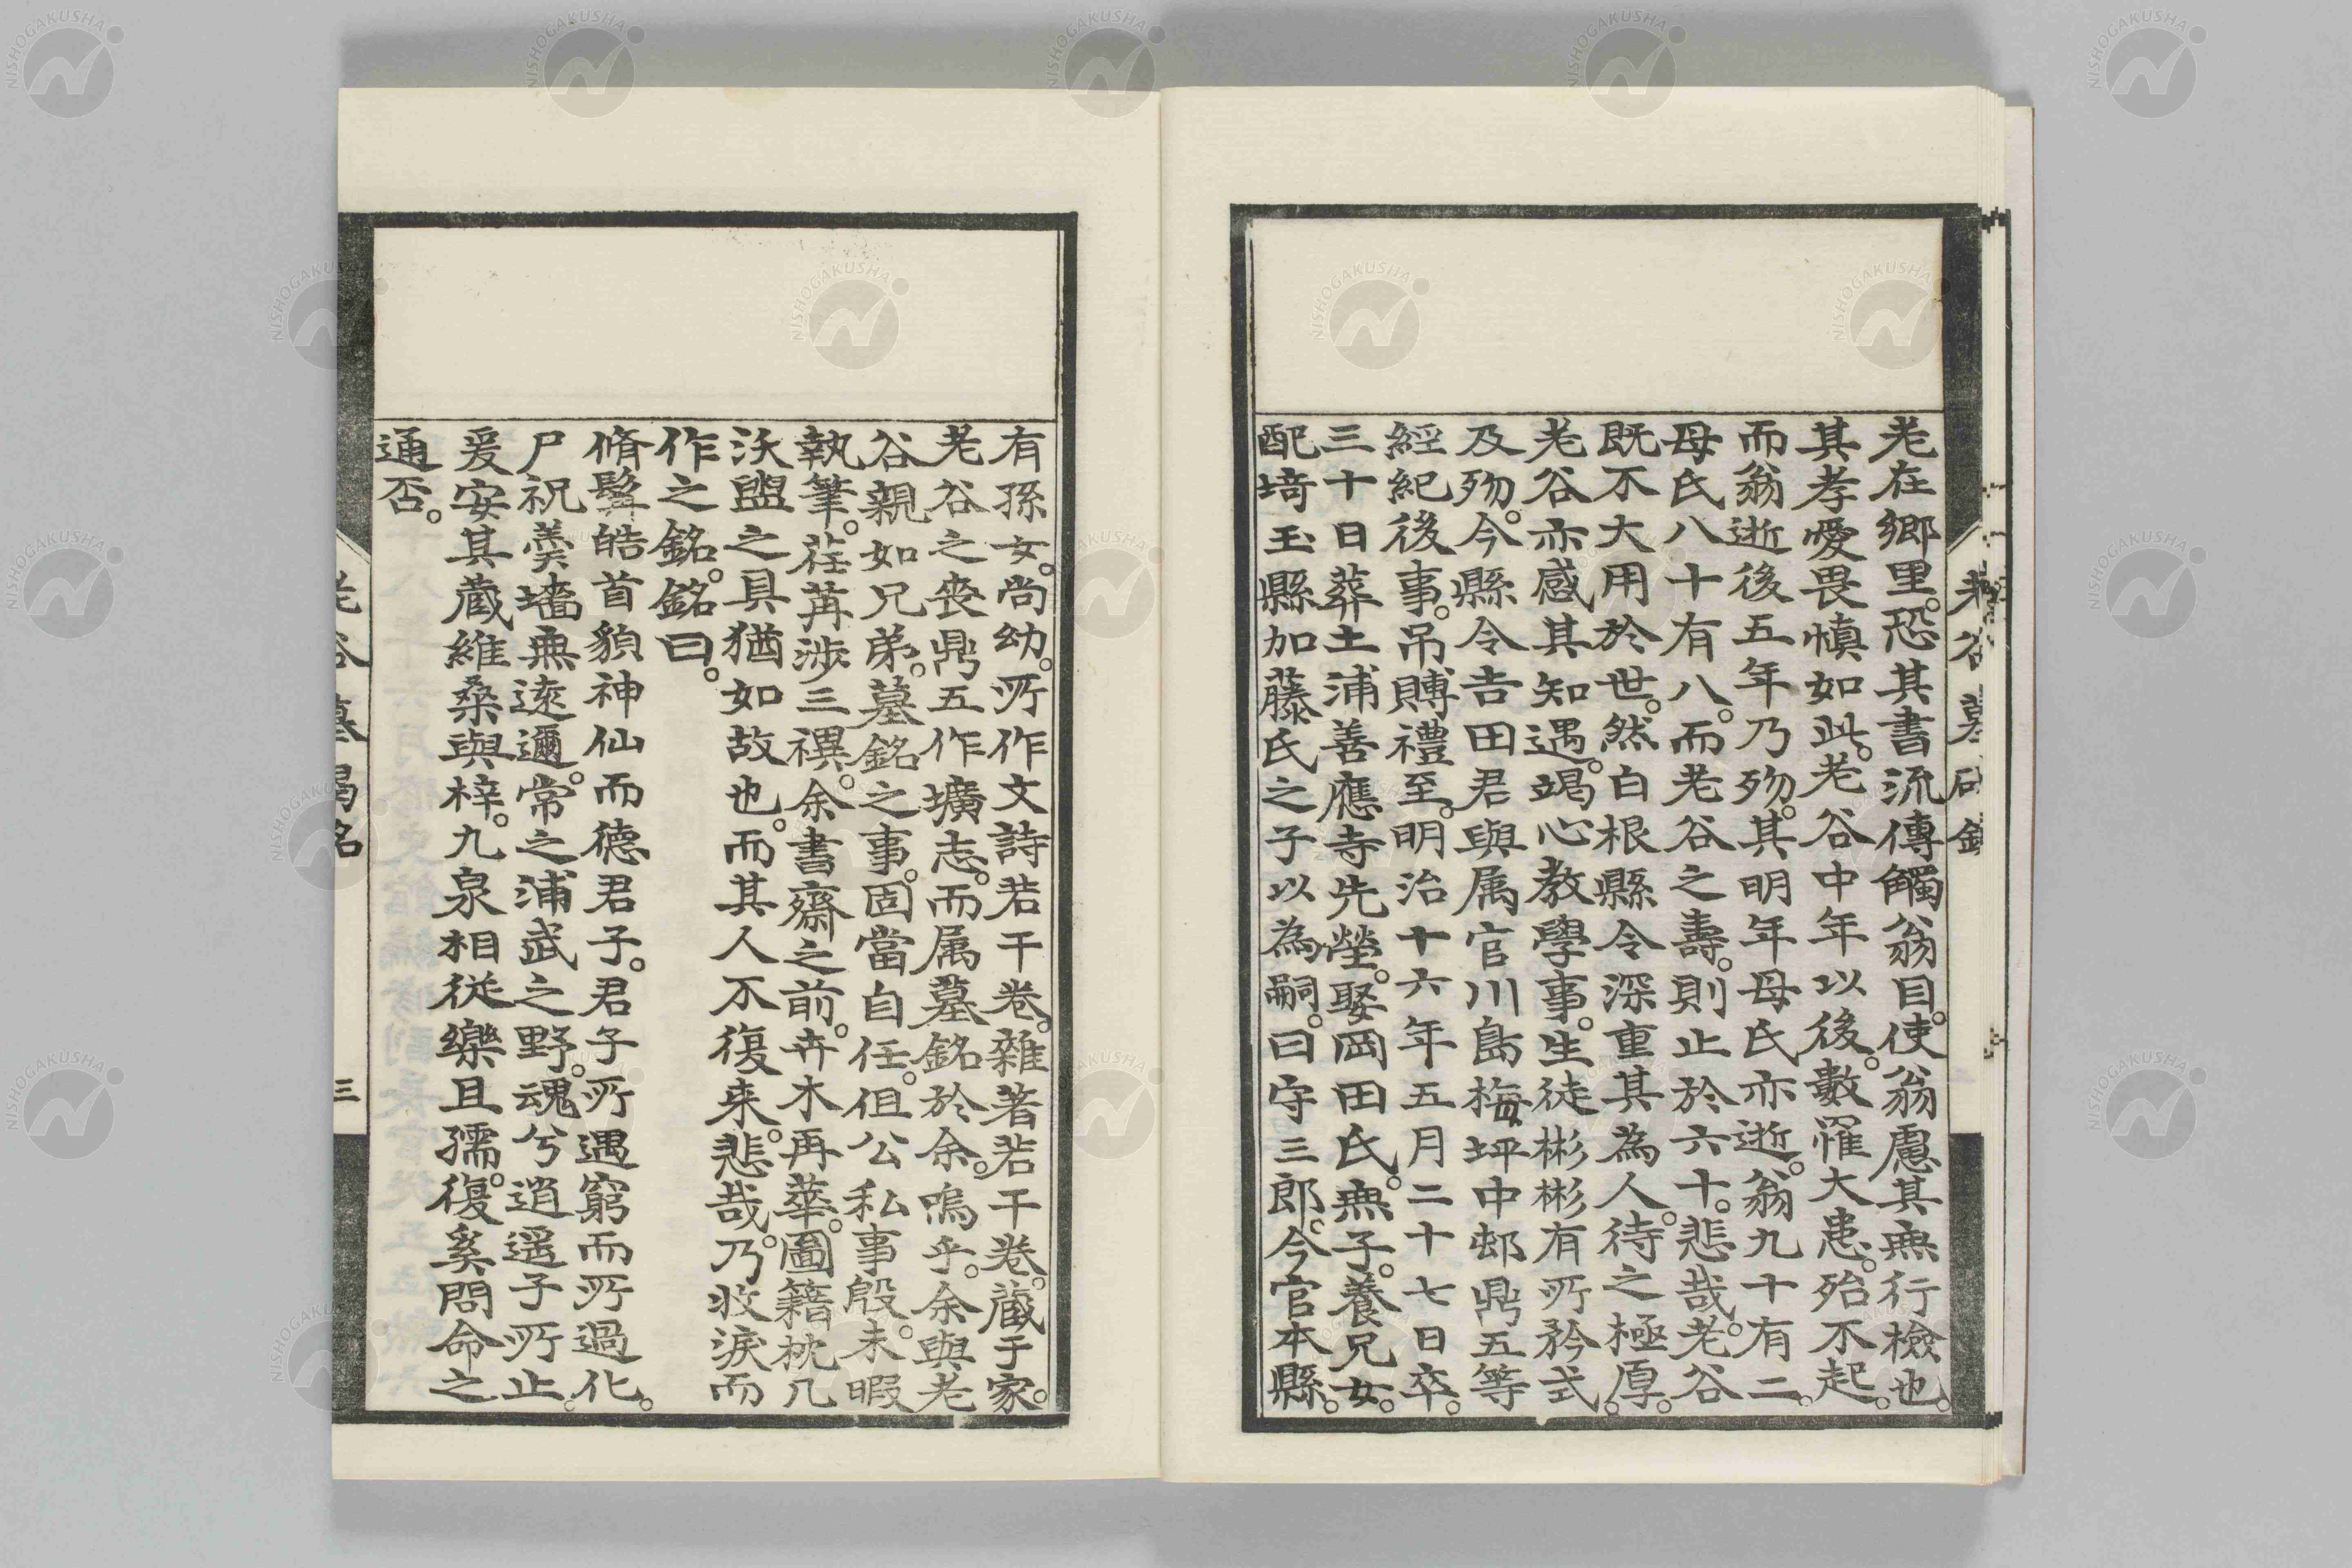 老在鄉里。恐其書流傳觸翁目。使翁慮其無行檢也。
其孝愛畏慎如此。老谷中年以後。數罹大患。殆不起。
而翁逝後五年乃歾。其明年母氏亦逝。翁九十有二。
母氏八十有八。而老谷之壽。則止於六十。悲哉。老谷
既不大用於世。然白根縣令深重其為人。待之極厚。
老谷亦感其知遇。竭心教學事。生徒彬彬有所矜式。
及歾。今縣令吉田君與属官川島梅坪中邨鼎五等
經紀後事。吊賻禮至。明治十六年五月二十七日卒。
三十日葬土浦善應寺先塋。娶岡田氏。無子。養兄女。
配埼玉縣加藤氏之子以為嗣。曰守三郎。今官本縣。
有孫女。尚幼。所作文詩若干卷。雜著若干卷。藏于家。
老谷之喪。鼎五作壙志。而属墓銘於余。嗚乎。余與老
谷親如兄弟。墓銘之事。固當自任。但公私事殷。未暇
執筆。荏苒涉三禩。余書齋之前。卉木再華。圖籍枕几
沃盥之具猶如故也。而其人不復来。悲哉。乃收淚而
作之銘。銘曰。
脩髯皓首貌神仙而德君子。君子所遇窮而所過化。
尸祝羹墻無遠邇。常之浦武之野。魂兮逍遥子所止。
爰安其藏維桑與梓。九泉相從樂且孺。復奚問命之
通否。
老谷墓碣銘
三